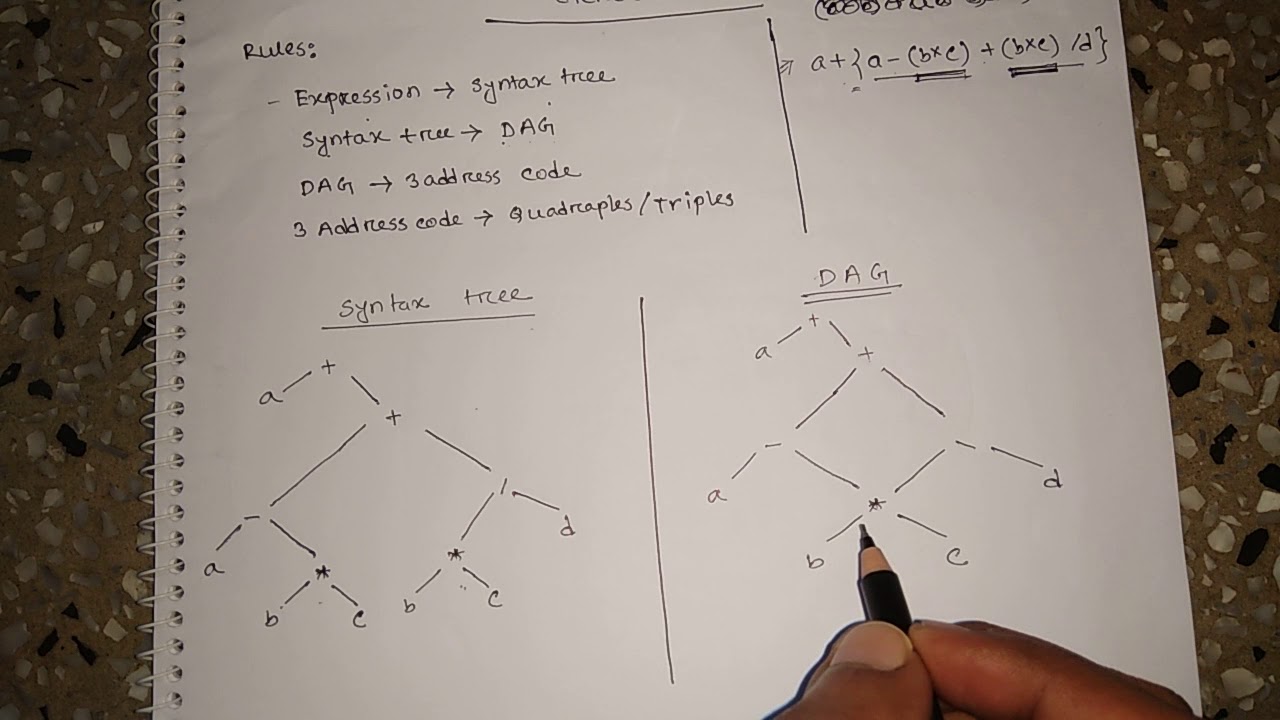 Rules:
- Expression → Syntax tree
Syntax tree → DAG
DAG → 3 address code
3 Address code → Quadraples/Triples
⇒ a+{a-(b×c)+(b×c)/d}
Syntax tree
+
a
+
-
/
a
*
*
d
b
c
b
c
DAG
+
a
+
-
-
a
*
d
b
c